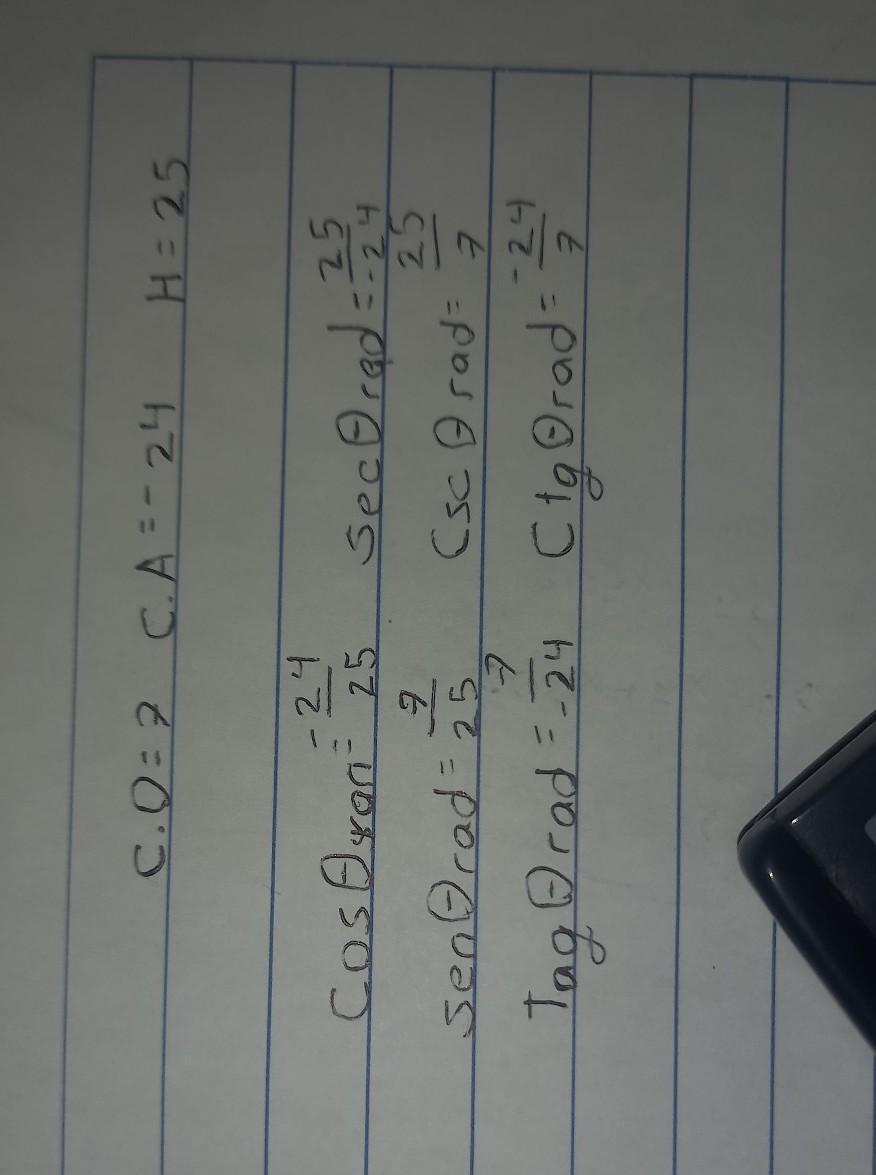 C.O = 7 C.A = -24 H = 25
Cos θ ran = -24/25 sec θ rad = 25/-24
Sen θ rad = 7/25 Csc θ rad = 25/7
Tag θ rad = 7/-24 Ctg θ rad = -24/7